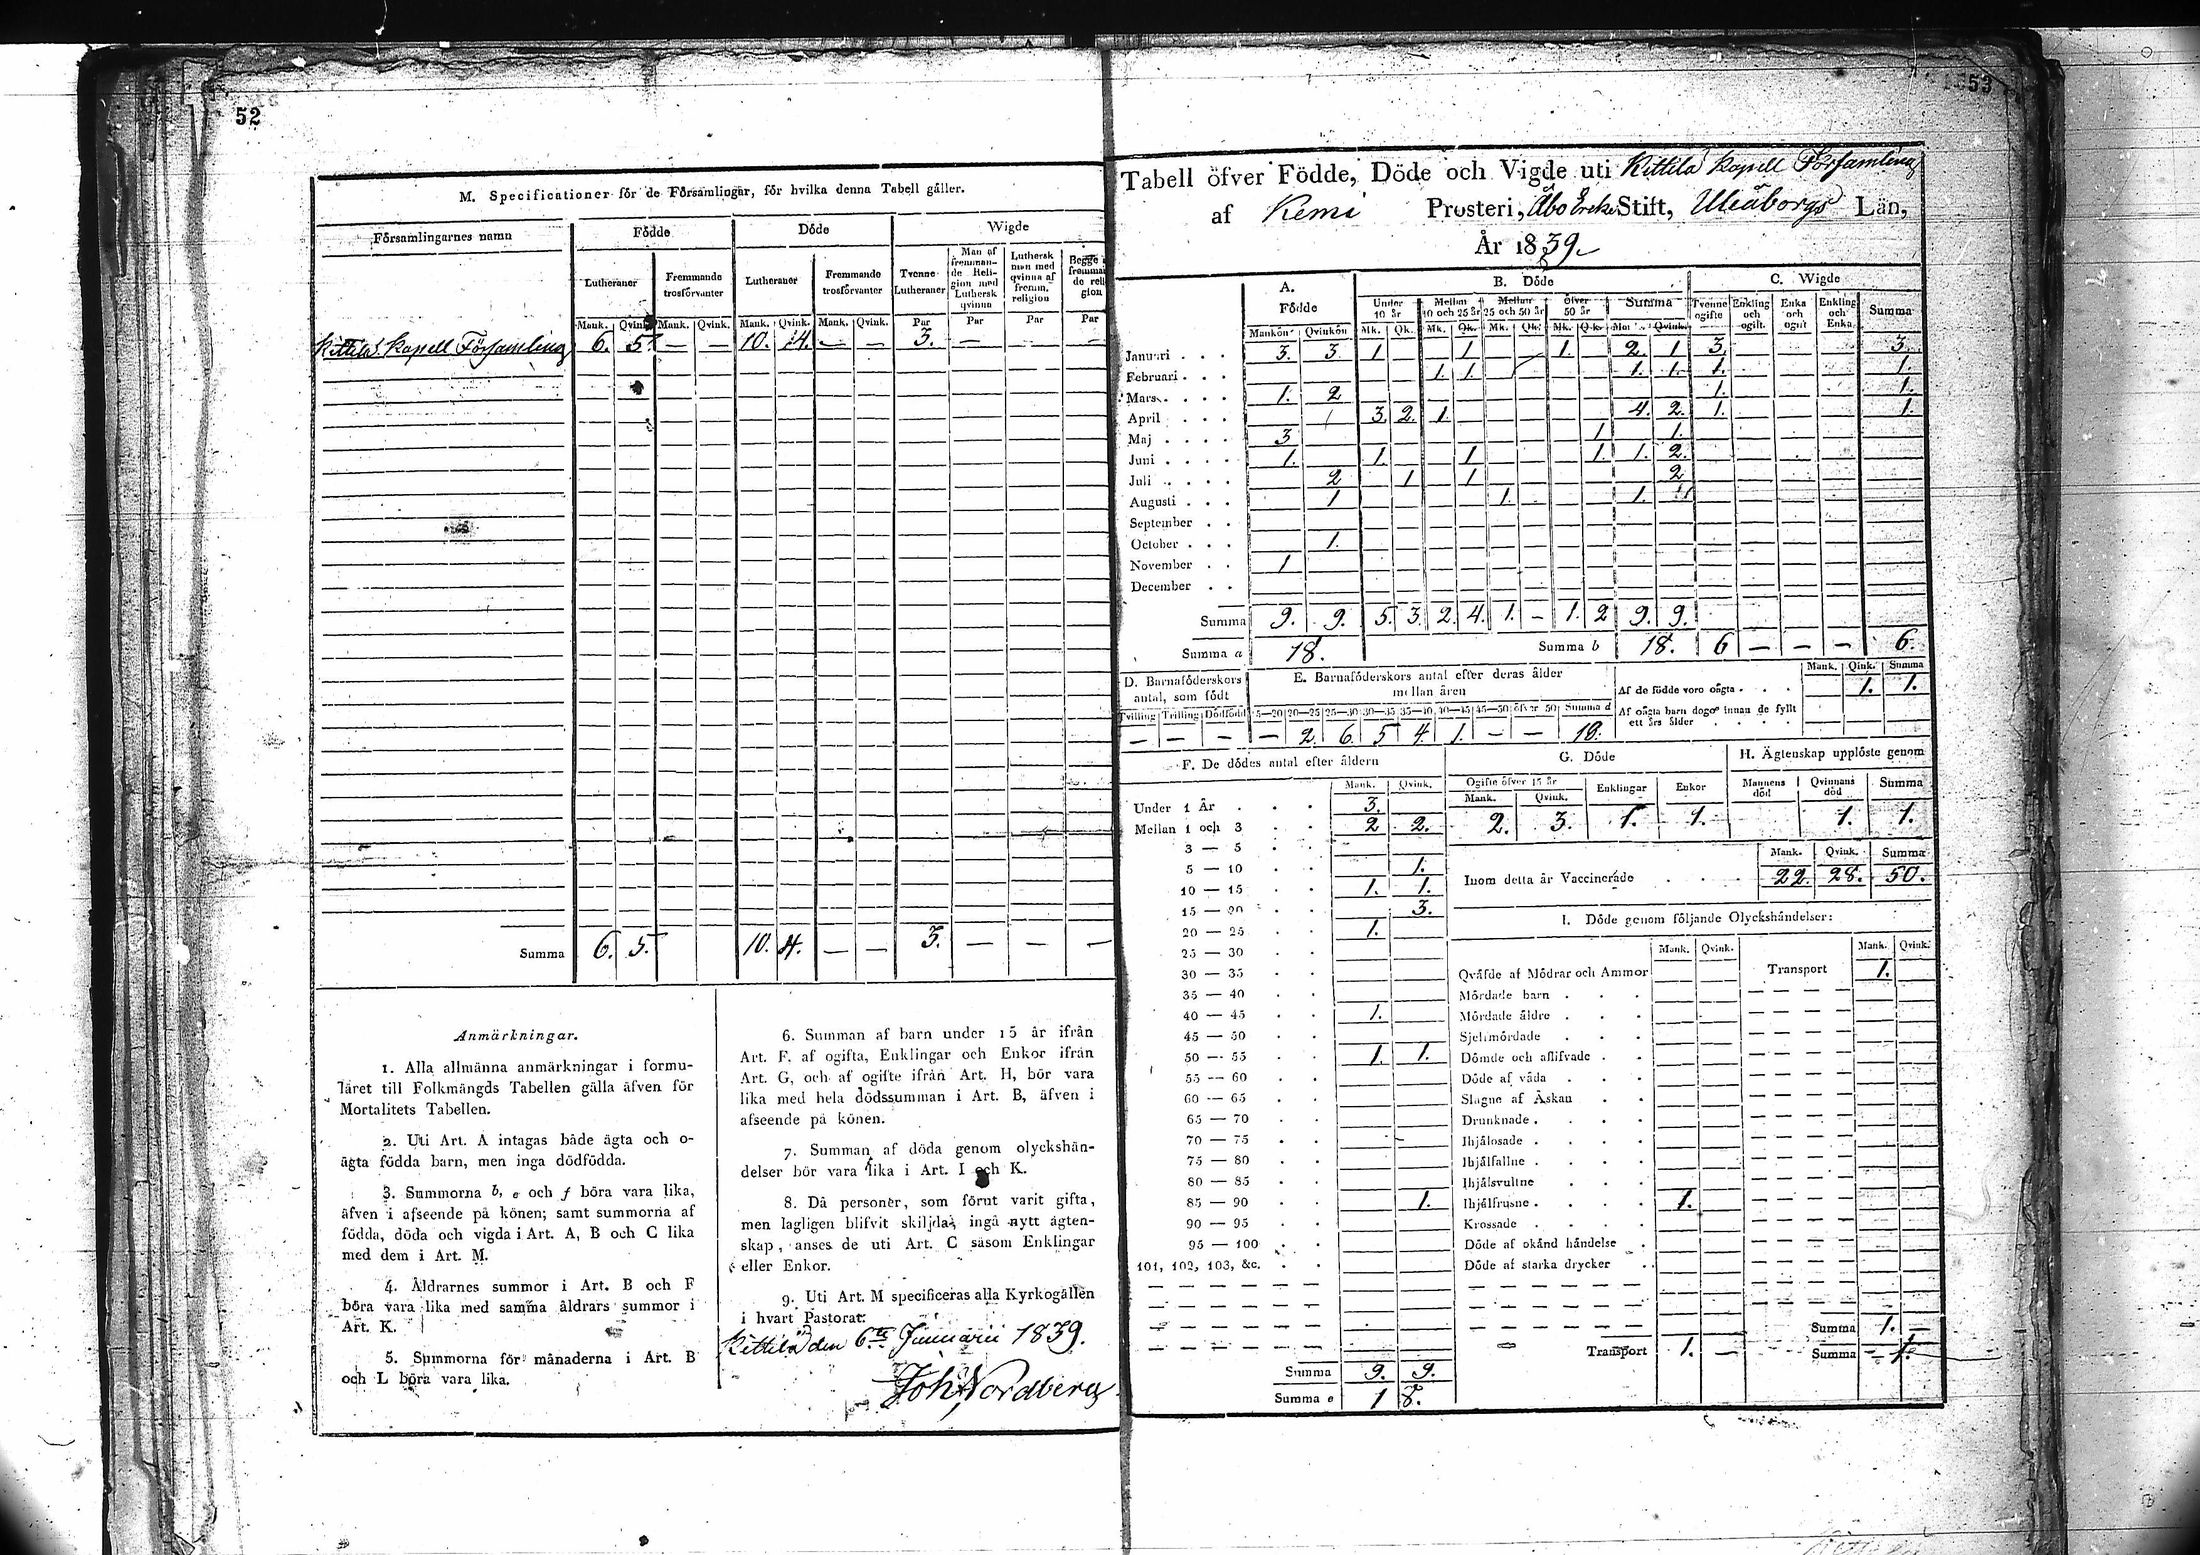 52
M. Specificationer för de Församlingar, för hvilka denna Tabell gäller.
Församlingarnes namn
Födde
Döde
Wigde
Lutheraner
Fremmande trosförvanter
Lutheraner
Fremmande trosförvanter
Tvenne Lutheraner
Man af fremmande Religion med Luthersk qvinna
Luthersk man med qvinna af fremm. religion
Begge fremman de reli gion
Mank. Qvink. Mank. Qvink. Mank. Qvink. Mank. Qvink. Par Par Par Par
Kittilä Kapell Församling 6. 5. — — 10. 4. — — 3. — — —
Summa 6. 5. 10. 4. — — 3. — — —
Anmärkningar.
1. Alla allmänna anmärkningar i formu-
läret till Folkmängds Tabellen gälla äfven för
Mortalitets Tabellen.
2. Uti Art. A intagas både ägta och o-
ägta födda barn, men inga dödfödda.
3. Summorna b, e och f böra vara lika,
äfven i afseende på könen; samt summorna af
födda, döda och vigda i Art. A, B och C lika
med dem i Art. M.
4. Åldrarnes summor i Art. B och F
böra vara lika med samma åldrars summor i
Art. K.
5. Summorna för månaderna i Art. B
och L böra vara lika.
6. Summan af barn under 15 år ifrån
Art. F. af ogifta, Enklingar och Enkor ifrån
Art. G, och af ogifte ifrån Art. H, bör vara
lika med hela dödssumman i Art. B, äfven i
afseende på könen.
7. Summan af döda genom olyckshän-
delser bör vara lika i Art. I och K.
8. Då personer, som förut varit gifta,
men lagligen blifvit skiljda, ingå nytt ägten-
skap, anses de uti Art. C såsom Enklingar
eller Enkor.
9. Uti Art. M specificeras alla Kyrkogällen
i hvart Pastorat.
Kittilä den 6te Januarii 1839.
Joh. Nordberg
53
Tabell öfver Födde, Döde och Vigde uti Kittilä Kapell Församling
af Kemi Prosteri, Åbo Erke Stift, Uleåborgs Län,
År 1839.
A. Födde
B. Döde
C. Wigde
Under 10 år
Mellan 10 och 25 år
Mellan 25 och 50 år
öfver 50 år
Summa
Tvenne ogifte
Enkling och ogift.
Enka och ogift
Enkling och Enka
Summa
Mankön Qvinkön Mk. Qk. Mk. Qk. Mk. Qk. Mk. Qk. Qvink.
Januari 3. 3. 1 1 1. 2. 1 3. 3.
Februari 1. 1. 1. 1. 1. 1.
Mars 1. 2 1. 1.
April 3. 2. 1. 4. 2. 1. 1.
Maj 3 1 1.
Juni 1. 1. 1 1. 1. 2.
Juli 2 1 1 2
Augusti 1 1. 1.
September
October 1.
November 1
December
Summa 9. 9. 5. 3. 2. 4. 1. — 1. 2 9. 9.
Summa a 18. Summa b 18. 6 — — — 6.
D. Barnaföderskors antal, som födt
E. Barnaföderskors antal efter deras ålder mellan åren
Mank. Qink. Summa
Af de födde voro oägta 1. 1.
Af oägta barn dogo innan de fyllt
ett års ålder
Tvilling Trilling Dödfödd 15—20 20—25 25—30 30—35 35—40 40—45 45—50 öfver 50 Summa d
— — — — 2. 6. 5 4. 1. — — 18.
F. De dödes antal efter åldern
Mank. Qvink.
Under 1 År 3.
Mellan 1 och 3 2 2.
3 — 5
5 — 10 1.
10 — 15 1. 1.
15 — 20 3.
20 — 25 1.
25 — 30
30 — 35
35 — 40
40 — 45 1.
45 — 50
50 — 55 1. 1.
55 — 60
60 — 65
65 — 70
70 — 75
75 — 80
80 — 85
85 — 90 1.
90 — 95
95 — 100
101, 102, 103, &c.
Summa 9. 9.
Summa e 18.
G. Döde
Ogifte öfver 15 år
Enklingar
Enkor
Mank. Qvink.
2. 3. 1. 1.
H. Ägtenskap upplöste genom
Mannens död
Qvinnans död
Summa
1. 1.
Mank. Qvink. Summa
Inom detta år Vaccinerade 22. 28. 50.
I. Döde genom följande Olyckshändelser:
Mank. Qvink. Mank. Qvink.
Qväfde af Mödrar och Ammor Transport 1.
Mördade barn
Mördade äldre
Sjelfmördade
Dömde och aflifvade
Döde af våda
Slagne af Åskan
Drunknade
Ihjälosade
Ihjälfallne
Ihjälsvultne
Ihjälfrusne 1.
Krossade
Döde af okänd händelse
Döde af starka drycker
Summa 1. —
Transport 1. — Summa 1.